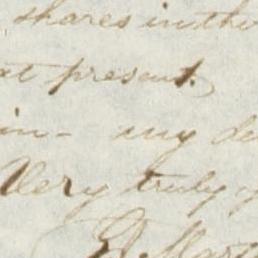 shares in the
at present.
in - any
Very truly y